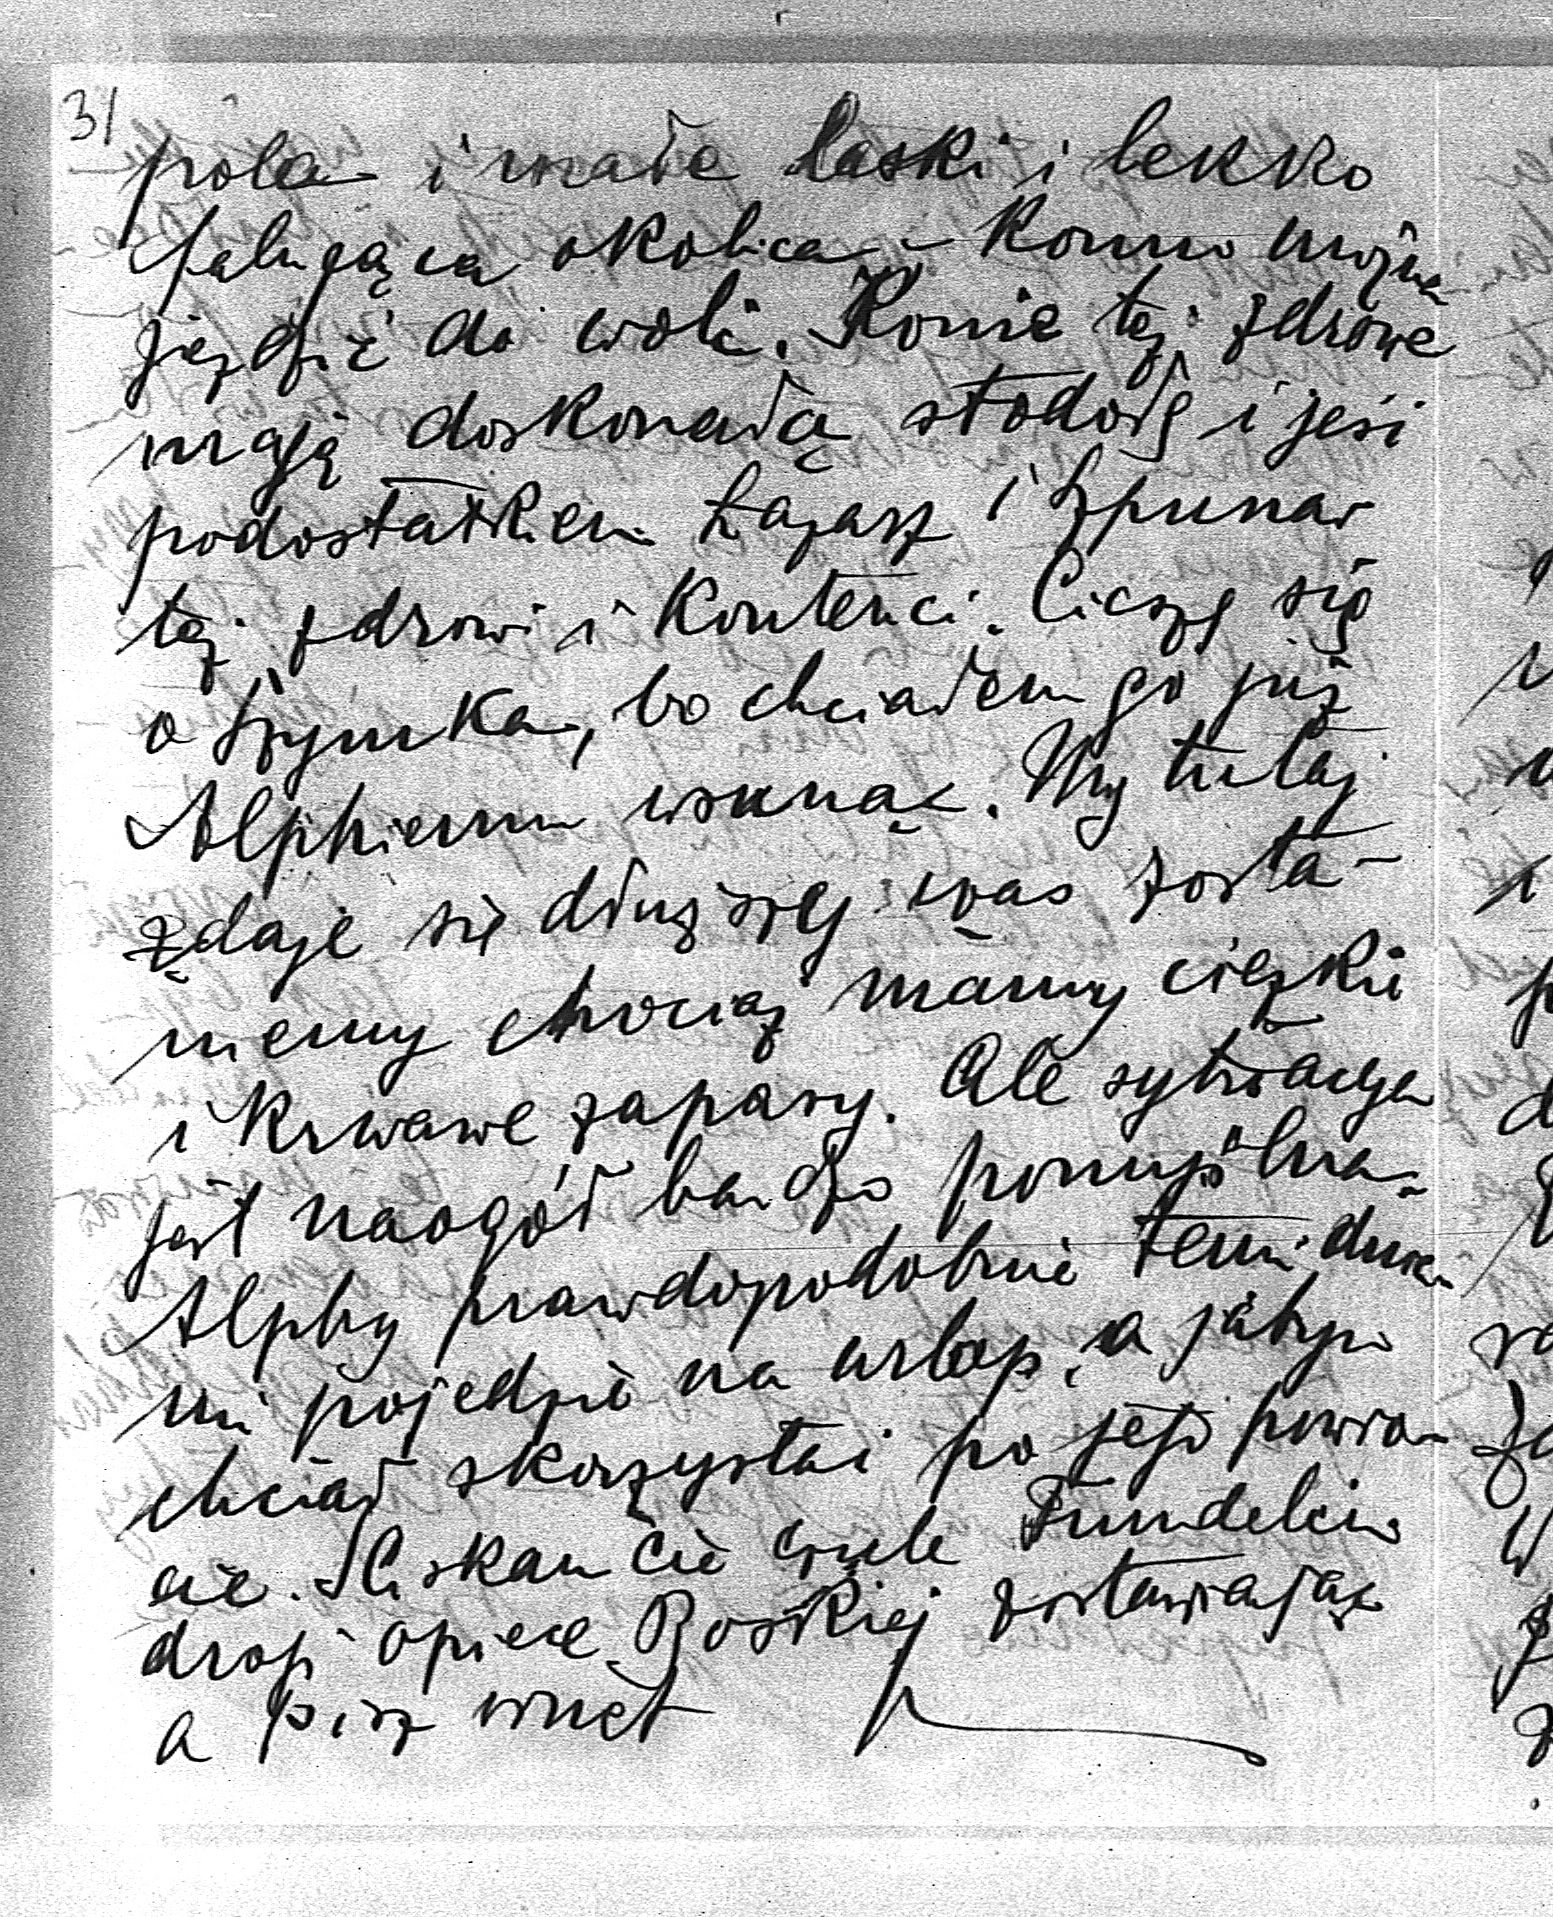 3/
pola i małe laski i lekko
falująca okolica – konno można
jeździć do woli. Konie też zdrowe
mają doskonałą stodołę i jeść
podostatkiem Łazarz i Szpunar
też zdrowi i kontenci. Cieszę się
o Szymka, bo chciałem go już
Alphiemu wsunąć. My tutaj
zdaje się dłuższy czas zosta-
niemy chociaż mamy ciężkie
i krwawe zapasy. Ale sytuacya
jest naogół bardzo pomyślna.
Alphy prawdopodobnie temi dnia
mi pojedzie na urlop, a jabym
chciał skorzystać po jego powro-
cie. Ściskam Cię czule
drogi opiece Boskiej zostawiając
a pisz wnet